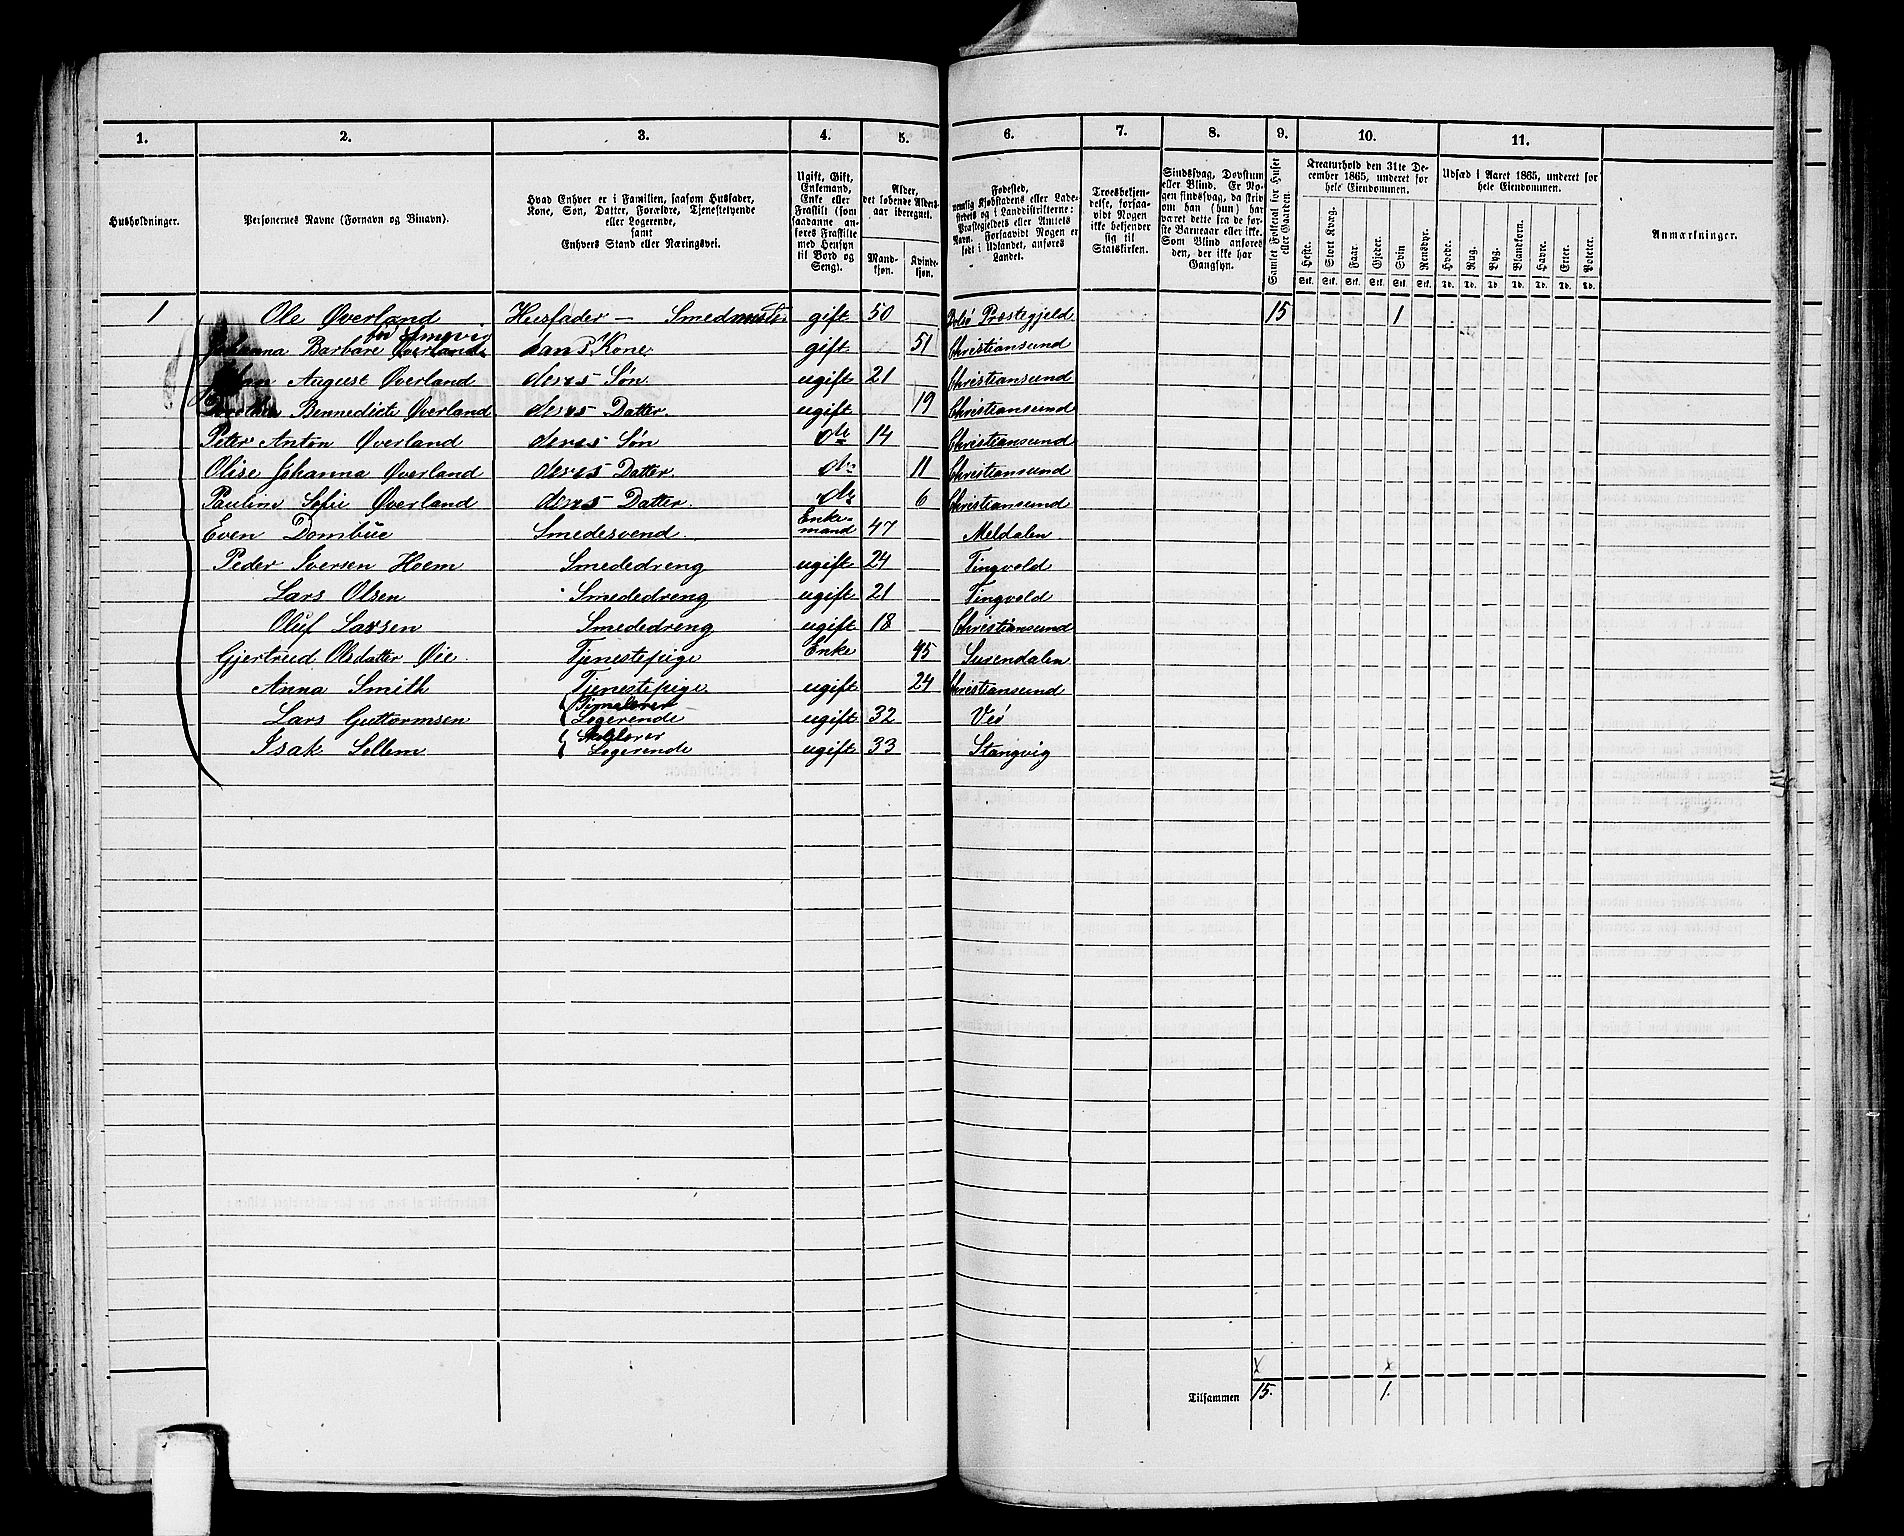 1. 2. 3. 4. 5. 6. 7. 8. 9. 10. 11.
Husholdninger.
Personernes Navne (Fornavn og Binavn).
Hvad Enhver er i Familien, saasom Husfader,
Kone, Søn, Datter, Forældre, Tjenestetyende
eller Logerende,
samt
Enhvers Stand eller Næringsvei.
Ugift, Gift,
Enkemand,
Enke eller
Fraskilt (som
saadanne an-
føres Fraskilte
med Hensyn
til Bord og
Seng).
Alder,
det løbende Alders-
aar iberegnet.
Mand-
kjøn.
Kvinde-
kjøn.
Fødested,
nemlig Kjøbstadens eller Lade-
stedets og i Landdistrikterne:
Præstegjeldets eller Amtets
Navn. Forsaavidt Nogen er
født i Udlandet, anføres
Landet.
Troesbekjen-
delse, forsaa-
vidt Nogen
ikke bekjender
sig til
Statskirken.
Sindssvag, Døvstum
eller Blind. Er No-
gen sindssvag, da skrives
om han (hun) har
været dette fra de før-
ste Barneaar eller ikke.
Som Blind anføres
den, der ikke har
Gangsyn.
Samlet Folketal for Huset
eller Gaarden.
Kreaturhold den 31te De-
cember 1865, underet for
hele Eiendommen.
Heste. Stort Kvæg. Faar. Gjeder. Svin Rensdyr.
Stk. Stk. Stk. Stk. Stk. Stk.
Udsæd i Aaret 1865, underet for
hele Eiendommen.
Hvede. Rug. Byg. Blandkorn. Havre. Erter. Poteter.
Td. Td. Td. Td. Td. Td. Td.
Anmærkninger.
1 Ole Øverland Husfader – Smedmester gift 50 Bolsø Præstegjeld 15 1
Johanna Barbare Øverland hans Kone gift 51 Christiansund
Johan August Øverland deres Søn ugift 21 Christiansund
Dorthea Bennedicte Øverland deres Datter ugift 19 Christiansund
Peter Anton Øverland deres Søn do 14 Christiansund
Olise Johanna Øverland deres Datter do 11 Christiansund
Pauline Sofie Øverland deres Datter do 6 Christiansund
Even Dombüe Smedesvend Enke-mand 47 Meldalen
Peder Iversen Hoem Smededreng ugift 24 Tingvold
Lars Olsen Smededreng ugift 21 Tingvold
Oluf Larsen Smededreng ugift 18 Christiansund
Gjertrud Olsdatter Øie Tjenestepige Enke 45 Surendalen
Anna Smith Tjenestepige ugift 24 Christiansund
Lars Guttormsen Logerende ugift 32 Veø
Isak Sellem Logerende ugift 33 Stangvig
x x
Tilsammen 15. 1.